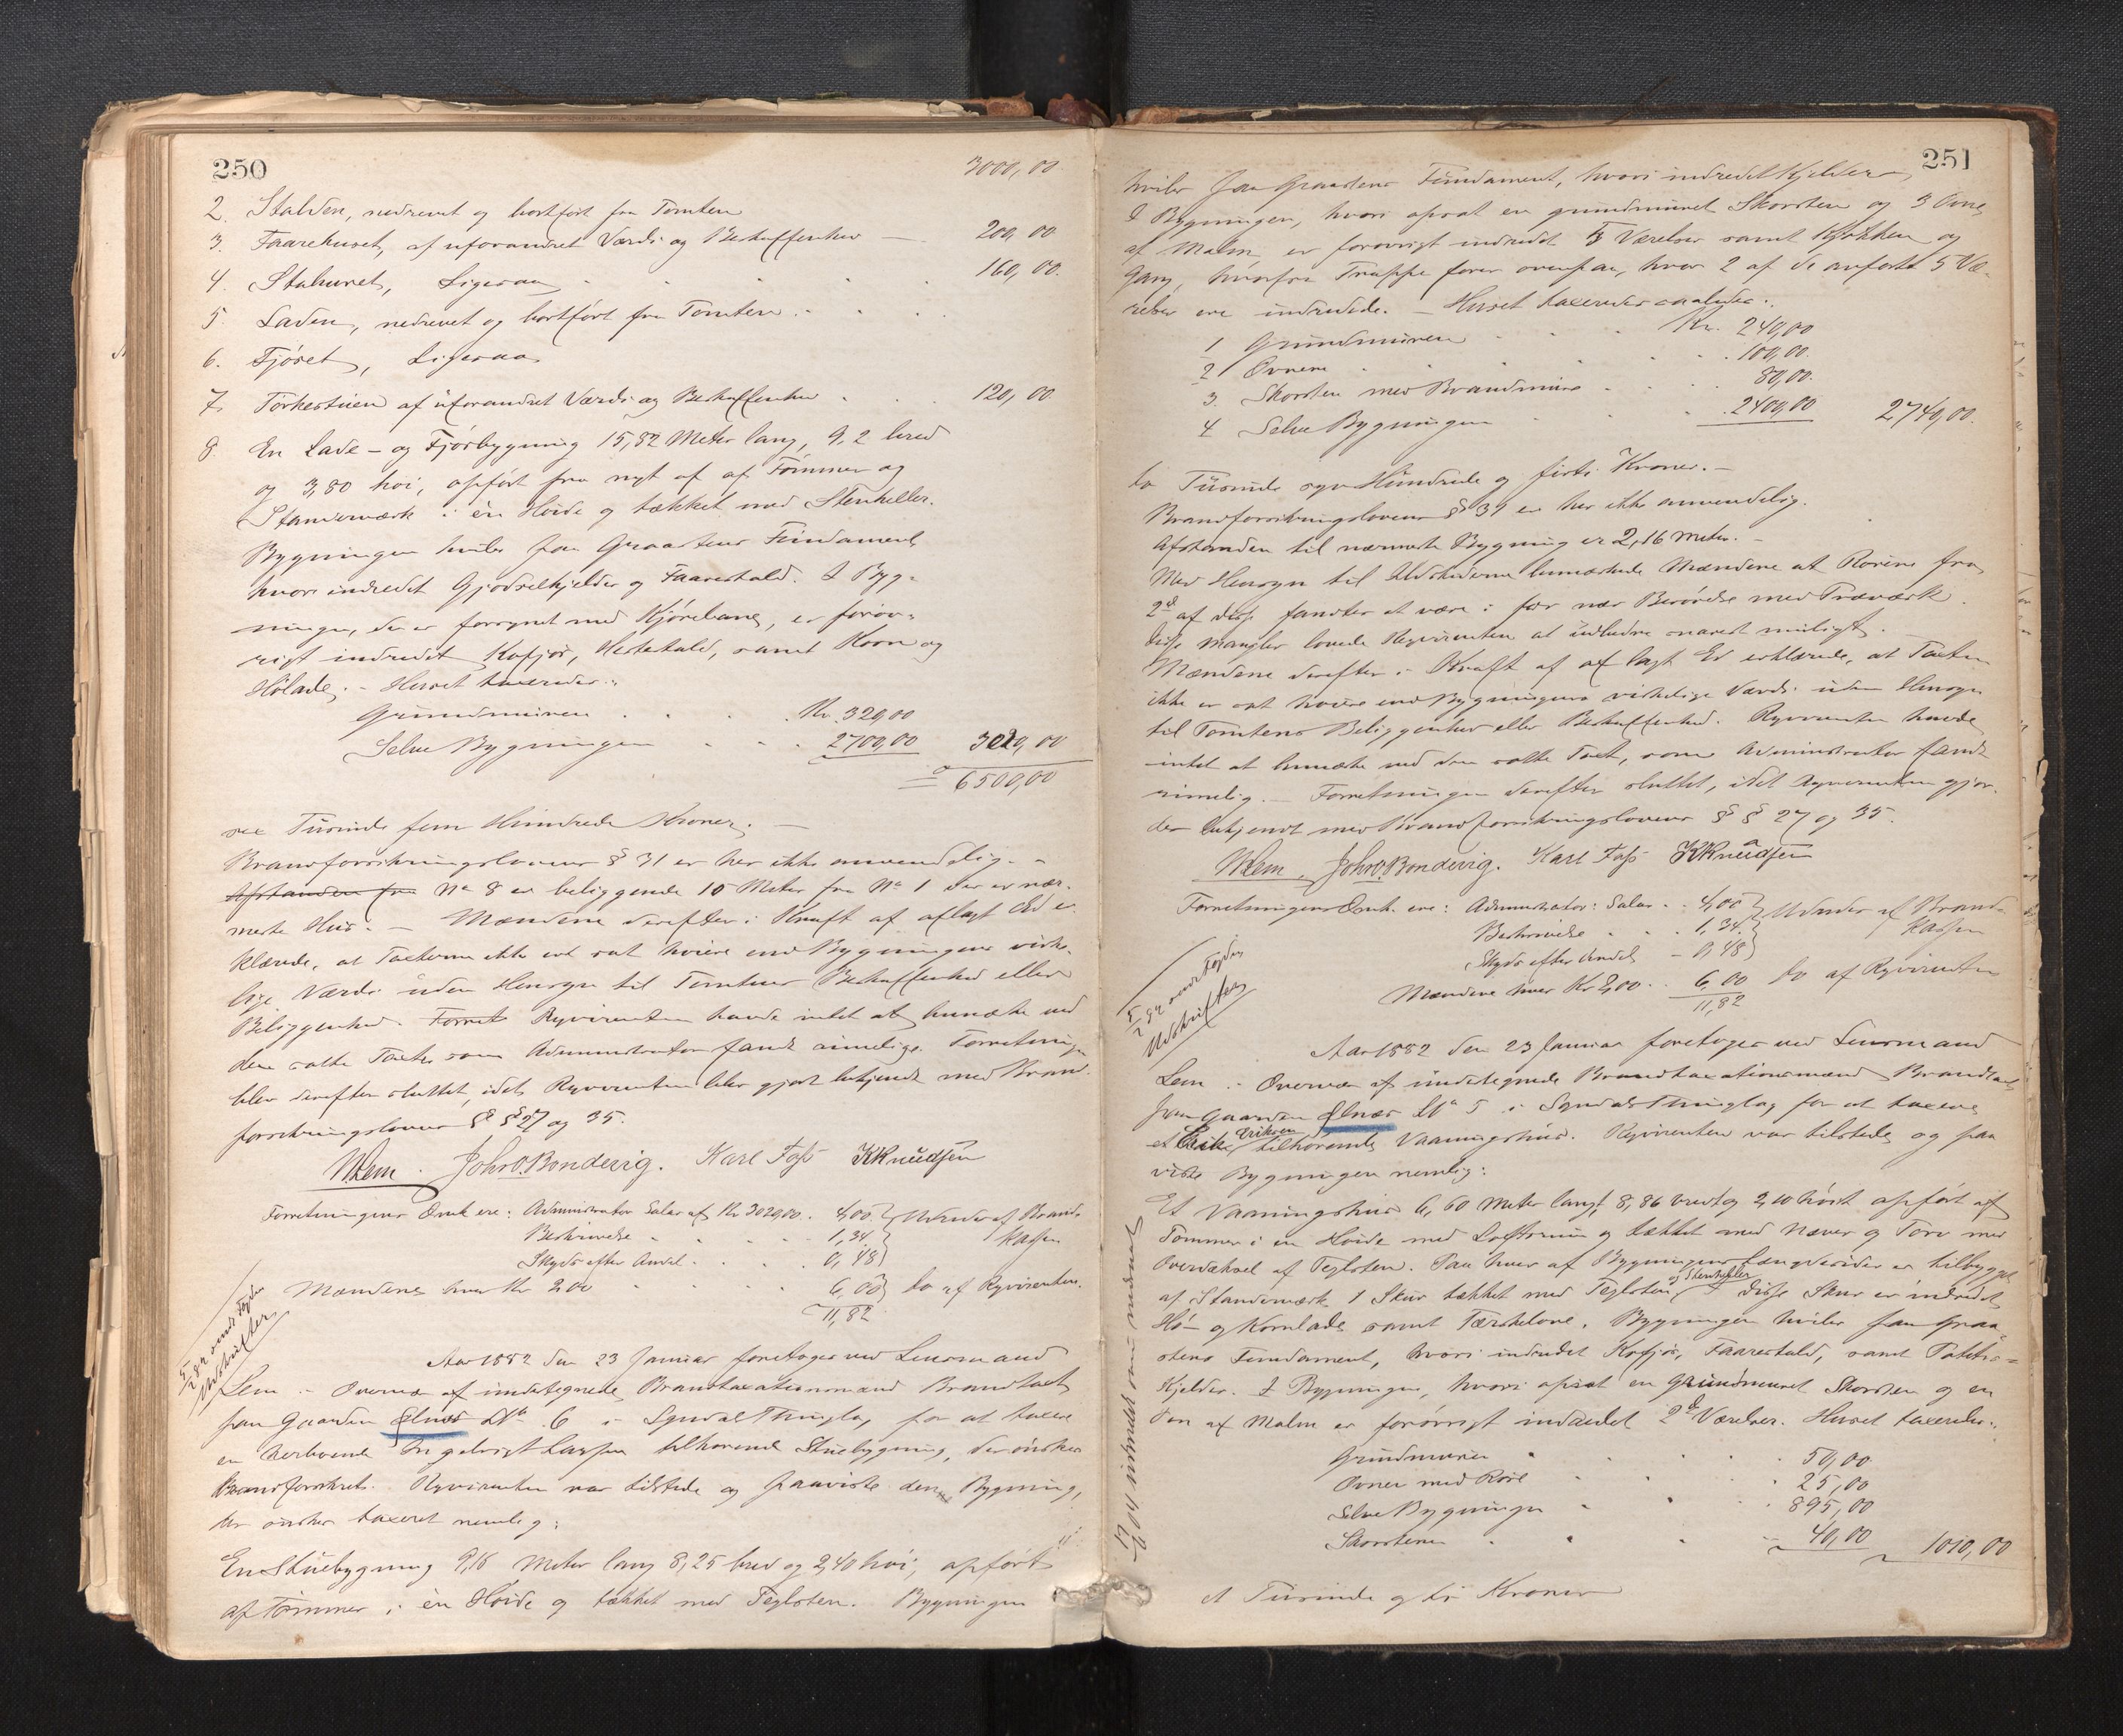 250
3000,00
2. Stalden, nedrevet og bortført fra Tomten
3. Faarehuset, af uforandret Værdi og Beskaffenhed — 200,00
4. Staburet, Ligesaa 160,00.
5 Laden, nedrevet og bortført fra Tomten
6. Fjøset, Ligesaa
7. Tørkestuen af uforandret Værdi og Beskaffenhed 120,00
8. En Lade- og Fjøsbygning 15,82 Meter lang, 9,2 bred
og 3,80 høi, opført fra nyt af af Tømmer og
Standerværk i én Høide og tækket med Stenheller.
Bygningen hviler paa Graastens Fundament
hvori indredet Gjødselkjelder og Faarestald. I Byg-
ningen, der er forsynet med Kjørebane, er forøv-
rigt indredet Kofjøs, Hestestald, samt Korn og
Hølade. – Huset taxeredes:
Grundmuren Kr. 320,00
Selve Bygningen 2700,00 3020,00
6500,00
sex Tusinde fem Hundrede Kroner. —
Brandforsikringslovens § 31 er her ikke anvendelig. –
Afstanden fra No 8 er beliggende 10 Meter fra No 1 der er nær-
meste Hus. – Mændene derefter i Kraft af aflagt Ed er-
klærede, at Taxterne ikke ere sat høiere end Bygningens virke-
lige Værdi uden Hensyn til Tomtens Beskaffenhed eller
Beliggenhed. Rekvirenten havde intet at bemærke ved
den satte Taxt som Administrator fandt rimelige. Forretningen
blev derefter sluttet, idet Rekvirenten blev gjort bekjendt med Brand-
forsikringslovens § § 27 og 35.
WLem. JohnO.Bondevig. Karl Foss KKnudsen
Forretningens Omk. ere: Administrator Salær af Kr 3020,00. 4,00 Udredes af Brand-
Beskrivelse 1,34 kassen
Skyds efter Andel 0,48
Mændene hver Kr 2,00 6,00 do af Rekvirenten.
11,82
Udskriften
Aar 1882 den 23 Januar foretoges ved Lensmand
Lem i Overvær af undertegnede Brandtaxationsmænd Brandtaxt
paa Gaarden Elnæs No 6 i Syndals Thinglag for at taxere
en derboende Ingebrigt Lassen tilhørende Stuebygning, der ønskes
Brandforsikret. Rekvirenten var tilstede og paaviste den Bygning,
der ønskes taxeret nemlig:
En Stuebygning 9,18 Meter lang 8,25 bred og 2,40 høi, opført
af Tømmer i én Høide og tækket med Teglsten. Bygningen
251
hviler paa Graastens Fundament, hvori indredet Kjelder
I Bygningen, hvori opsat en grundmuret Skorsten og 3 Ovne
af Malm er forøvrigt indredet 5 Værelser samt Kjøkken og
Gang, hvorfra Trappe fører ovenpaa, hvor 2 af de anførte 5 Væ-
relser ere indredede. – Huset taxeredes saaledes:
1 Grundmuren Kr. 240,00
2 Ovnene 100,00.
3. Skorsten med Brandmure 80,00.
4 Selve Bygningen 2400,00 2740,00.
to Tusinde syv Hundrede og firti Kroner. –
Brandforsikringslovens § 31 er her ikke anvendelig.
Afstanden til nærmeste Bygning er 2,16 Meter. –
Med Hensyn til Ildstederne bemærkede Mændene at Rørene fra
2de af disse fandtes at være i for nær Berørelse med Træværk.
Disse Mangler lovede Rekvirenten at udbedre snarest muligt.
Mændene derefter i Kraft af aflagt Ed erklærede, at Taxten
ikke er sat høiere end Bygningens virkelige Værdi uden Hensyn
til Tomtens Beliggenhed eller Beskaffenhed. Rekvirenten havde
intet at bemærke ved den satte Taxt, som Administrator fandt
rimelig. – Forretningen derefter sluttet, idet Rekvirenten gjor-
des bekjendt med Brandforsikringslovens § § 27 og 35.
WLem. JohnO.Bondevig. Karl Foss KKnudsen
Forretningens Omk. ere: Administrator: Salær 4,00 Udredes af Brand-
Beskrivelse 1,34 kassen
Skyds efter Andel – 0,48
Mændene hver Kr 2,00 6,00 do af Rekvirenten
11,82
Udskriften
Aar 1882 den 23 Januar foretoges ved Lensmand
Lem i Overvær af undertegnede Brandtaxationsmænd Brandtaxt
paa Gaarden Elnæs No 5 i Syndals Thinglag for at taxere
et Erik Eriksen tilhørende Vaaningshus. Rekvirenten var tilstede og paa
viste Bygningen nemlig:
Et Vaaningshus 6,60 Meter langt, 8,86 bredt og 2,10 høit opført af
Tømmer i en Høide med Loftsrum og tækket med Næver og Torv med
Overdæksel af Teglsten. Paa hver af Bygningens Længdesider er tilbygget
af Standerværk 1 Skur tækket med Teglsten og Stenheller I disse Skur er indredet
Hø- og Kornlade samt Tærskelove. Bygningen hviler paa Graa-
stens Fundament, hvori indredet Kofjøs, Faarestald, samt Potetes-
Kjelder. I Bygningen, hvori opsat en grundmuret Skorsten og en
Ovn af Malm er forøvrigt indredet 2de Værelser. Huset taxeredes:
Grundmuren 50,00
Ovnen med Rør 25,00
Selve Bygningen 895,00
Skorstenen 40,00 1010,00
et Tusinde og ti Kroner